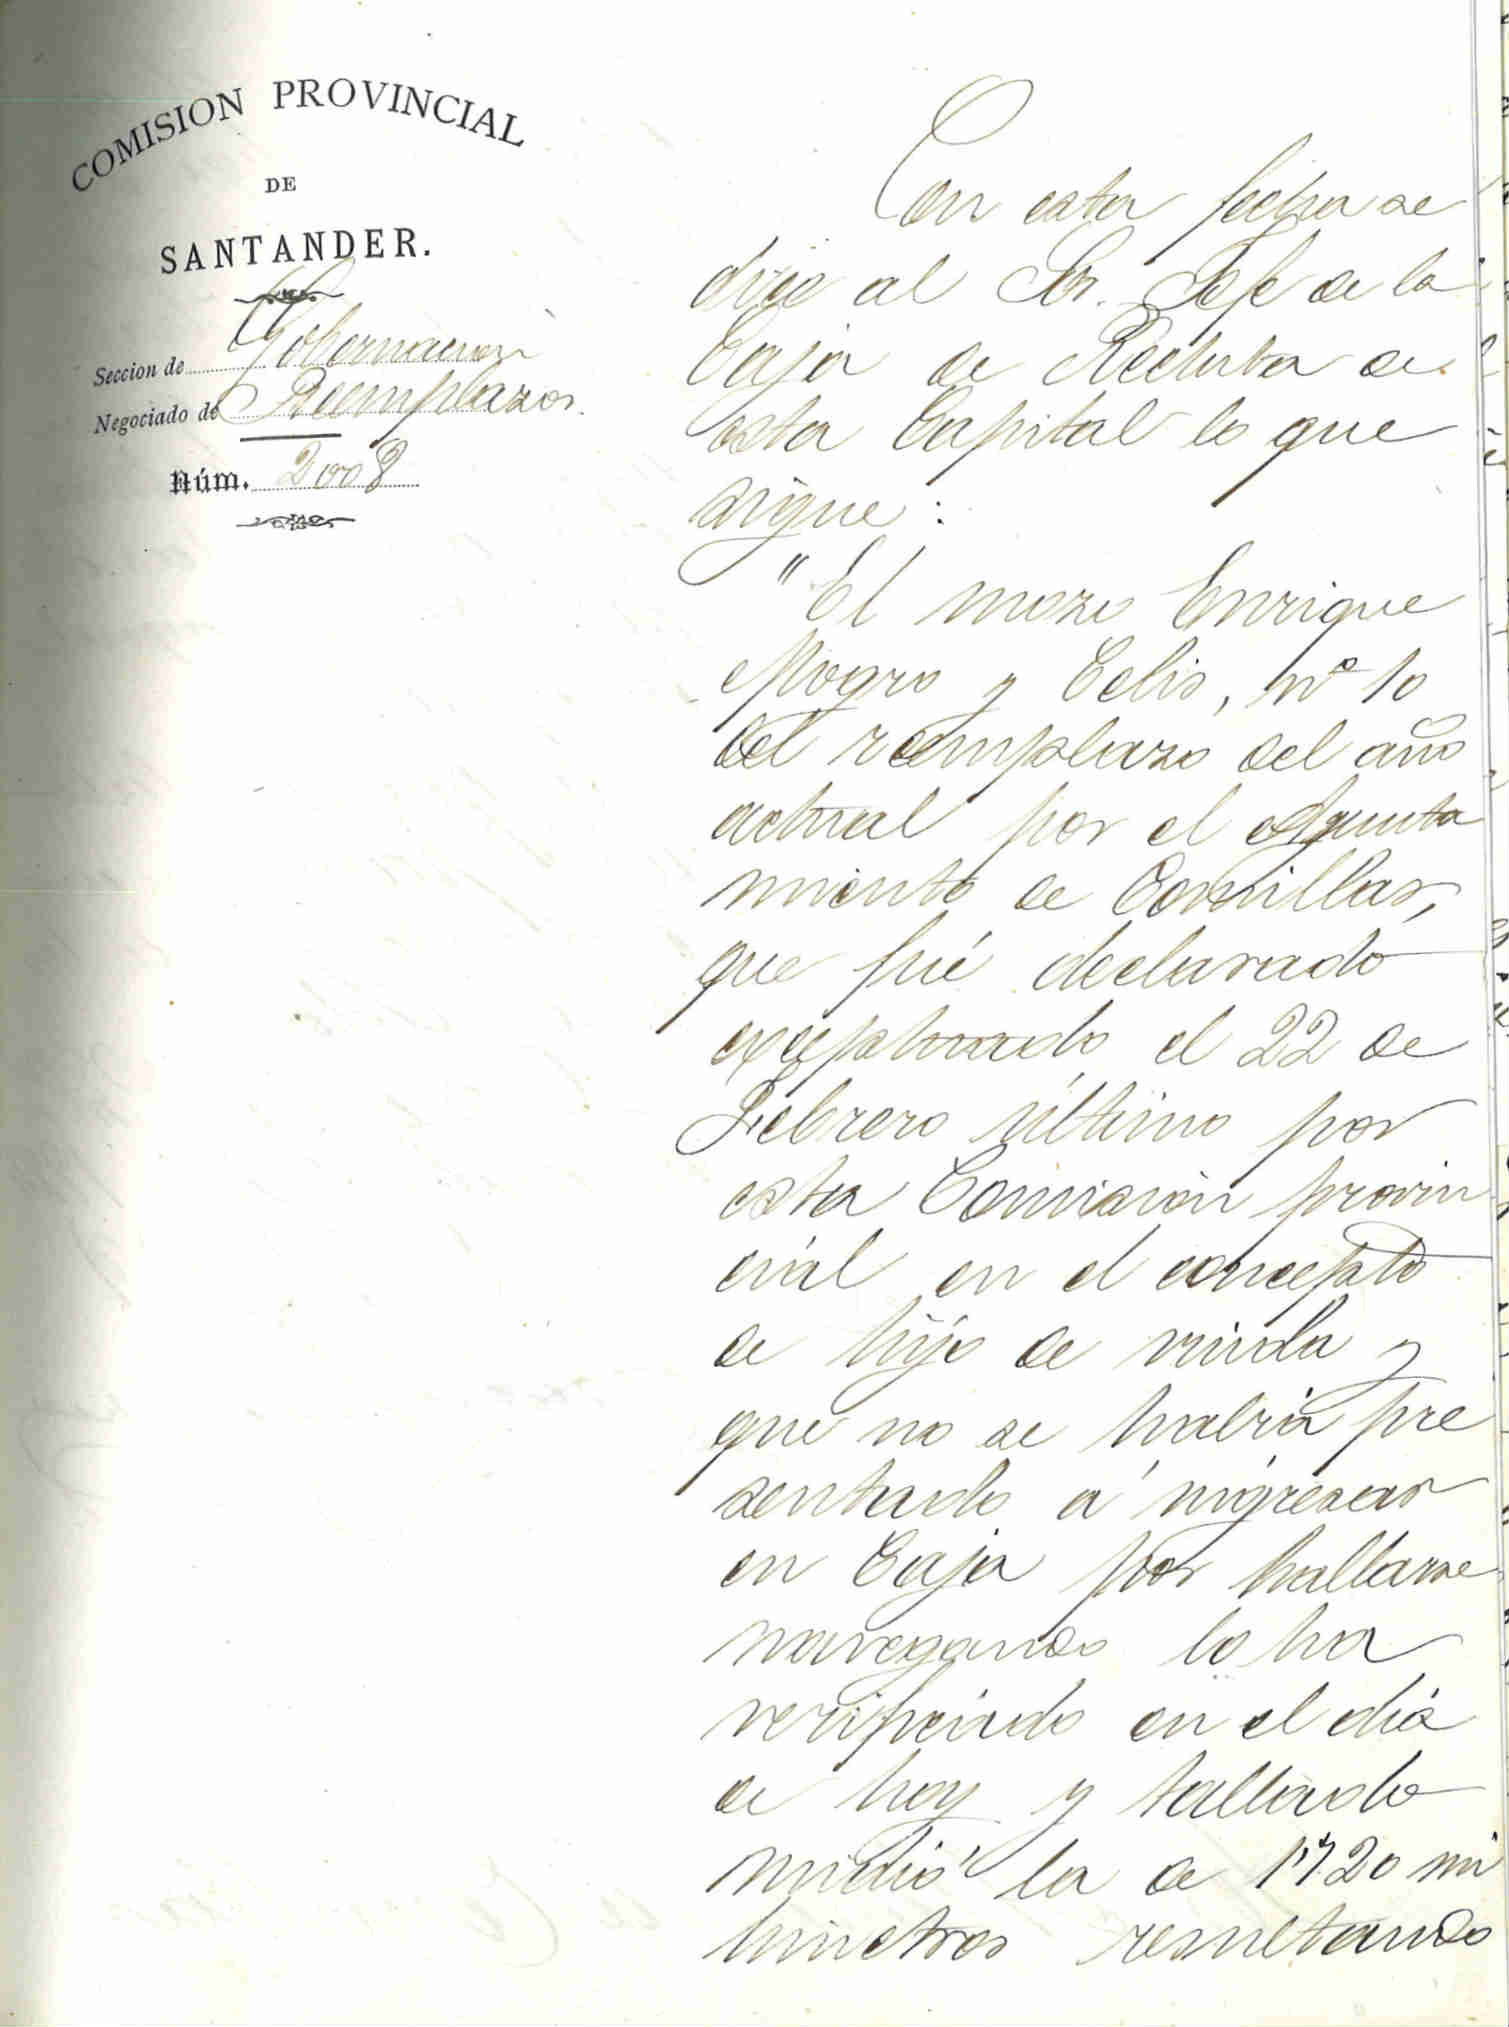 COMISION PROVINCIAL
DE
SANTANDER.
Seccion de Gobernacion
Negociado de Reemplazos.
Núm. 2008
Con esta fecha se
dice al Sr. Jefe de la
Caja de Recluta de
esta Capital lo que
sigue:
"El mozo Enrique
Mogro y Celis, nº 10
del reemplazo del año
actual por el Ayunta
miento de Comillas,
que fué declarado
exceptuado el 22 de
Febrero último por
esta Comisión provin
cial en el concepto
de hijo de viuda y
que no se habia pre
sentado á ingresar
en Caja por hallarse
navegando lo ha
verificado en el dia
de hoy y tallado
midió la de 1'720 mi
límetros resultando